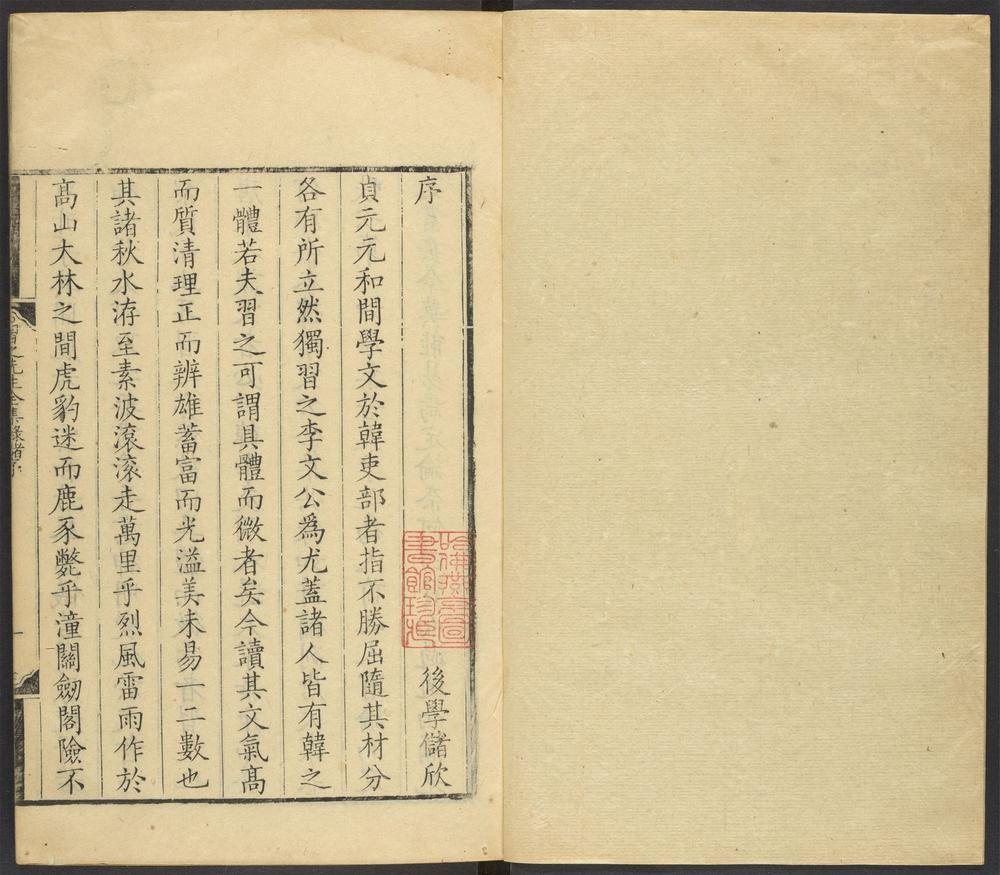 序 後學儲欣
貞元元和間學文於韓吏部者指不勝屈隨其材分
各有所立然獨習之李文公爲尤蓋諸人皆有韓之
一體若夫習之可謂具體而微者矣今讀其文氣高
而質清理正而辨雄蓄富而光溢美未易一二數也
其諸秋水洊至素波滾滾走萬里乎烈風雷雨作於
高山大林之間虎豹迷而鹿豕斃乎潼關劒閣險不
習之先生全集錄 序
一
哈佛燕京圖
書館珍藏